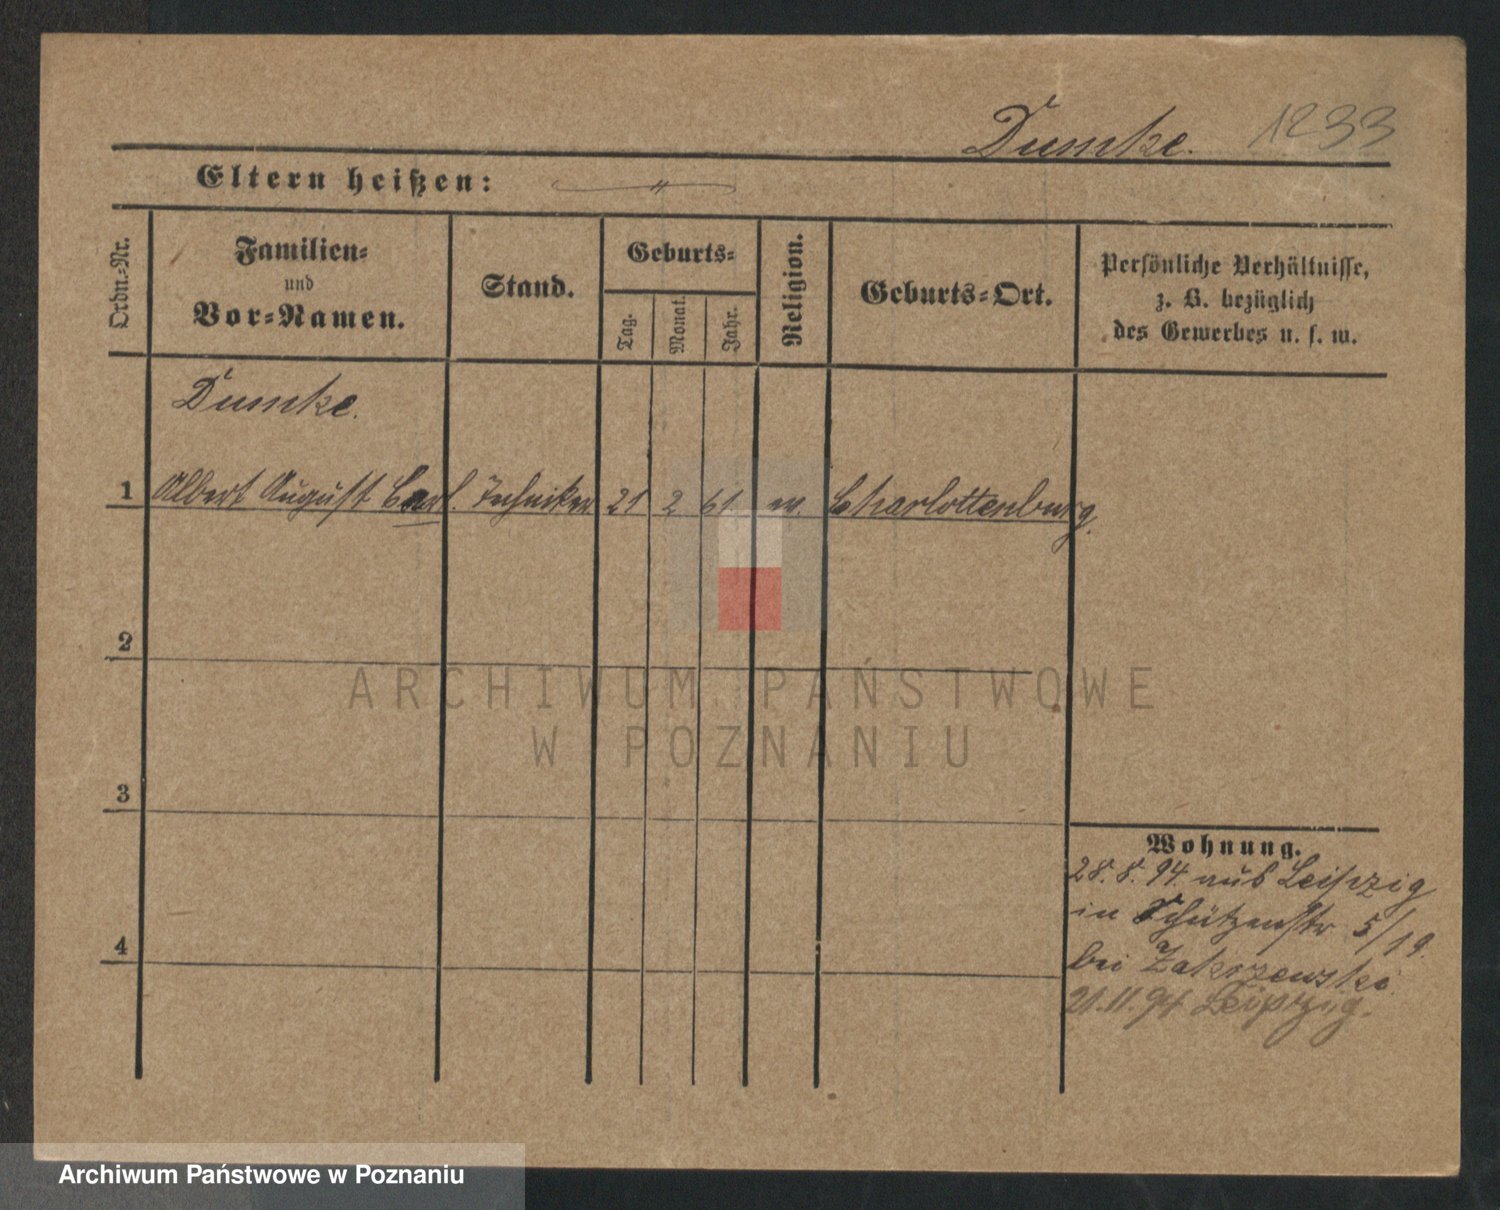 Dumke. 1233
Eltern heißen: "
Ordn.=Nr.
Familien=
und
Vor=Namen.
Stand.
Geburts=
Tag.
Monat.
Jahr.
Religion.
Geburts=Ort.
Persönliche Verhältnisse,
z. B. bezüglich
des Gewerbes u. s. w.
Dumke.
1 Albert August Carl. Techniker 21 2 61. ev. Charlottenburg.
2
3
4
Wohnung.
28.8.94. aus Leipzig
in Schützenstr 5/19.
bei Zakrzewski
21.11.94 Leipzig.
ARCHIWUM PAŃSTWOWE
W POZNANIU
Archiwum Państwowe w Poznaniu